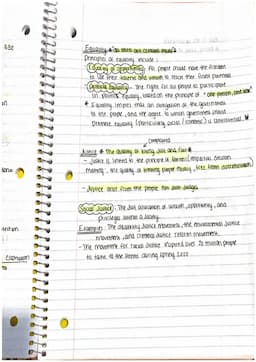 Equality → "all men are created equal"
Principles of equality include:
Equality of opportunity - All people should have the freedom
to use their talents and wealth to reach their fullest potential
Political Equality - The right for all people to participate
in political equality, based on the principle of "one person, one vote"
* Equality implies that an obligation of the government
to the people, and the degree to which government should
promote equality (particularly social / economic) is controversial.
(compound)
Justice → The quality of being just and fair
- Justice is linked to the principle of fairness (impartial decision
making, the quality of treating people equally, free from discrimination)
- Justice arises from the people, not just judges
Social Justice - The just allocation of wealth, opportunity, and
privilege within a society
Examples: The disability justice movement, the environmental justice
movement, and criminal justice reform movement.
- The movement for racial justice inspired over 20 million people
to take to the streets during spring 2020